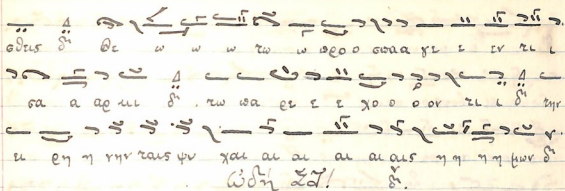 σθεις δι Θε ω ω ω τω ω προ ο σπαα γε ε εν τι ι
σα α αρ κι δι . τω πα ρε ε ε χο ο ο ον τι ι δι την
ει ρη η νην ταις ψυ χαι αι αι αι αι αις η η η η μων δι
Ωδή